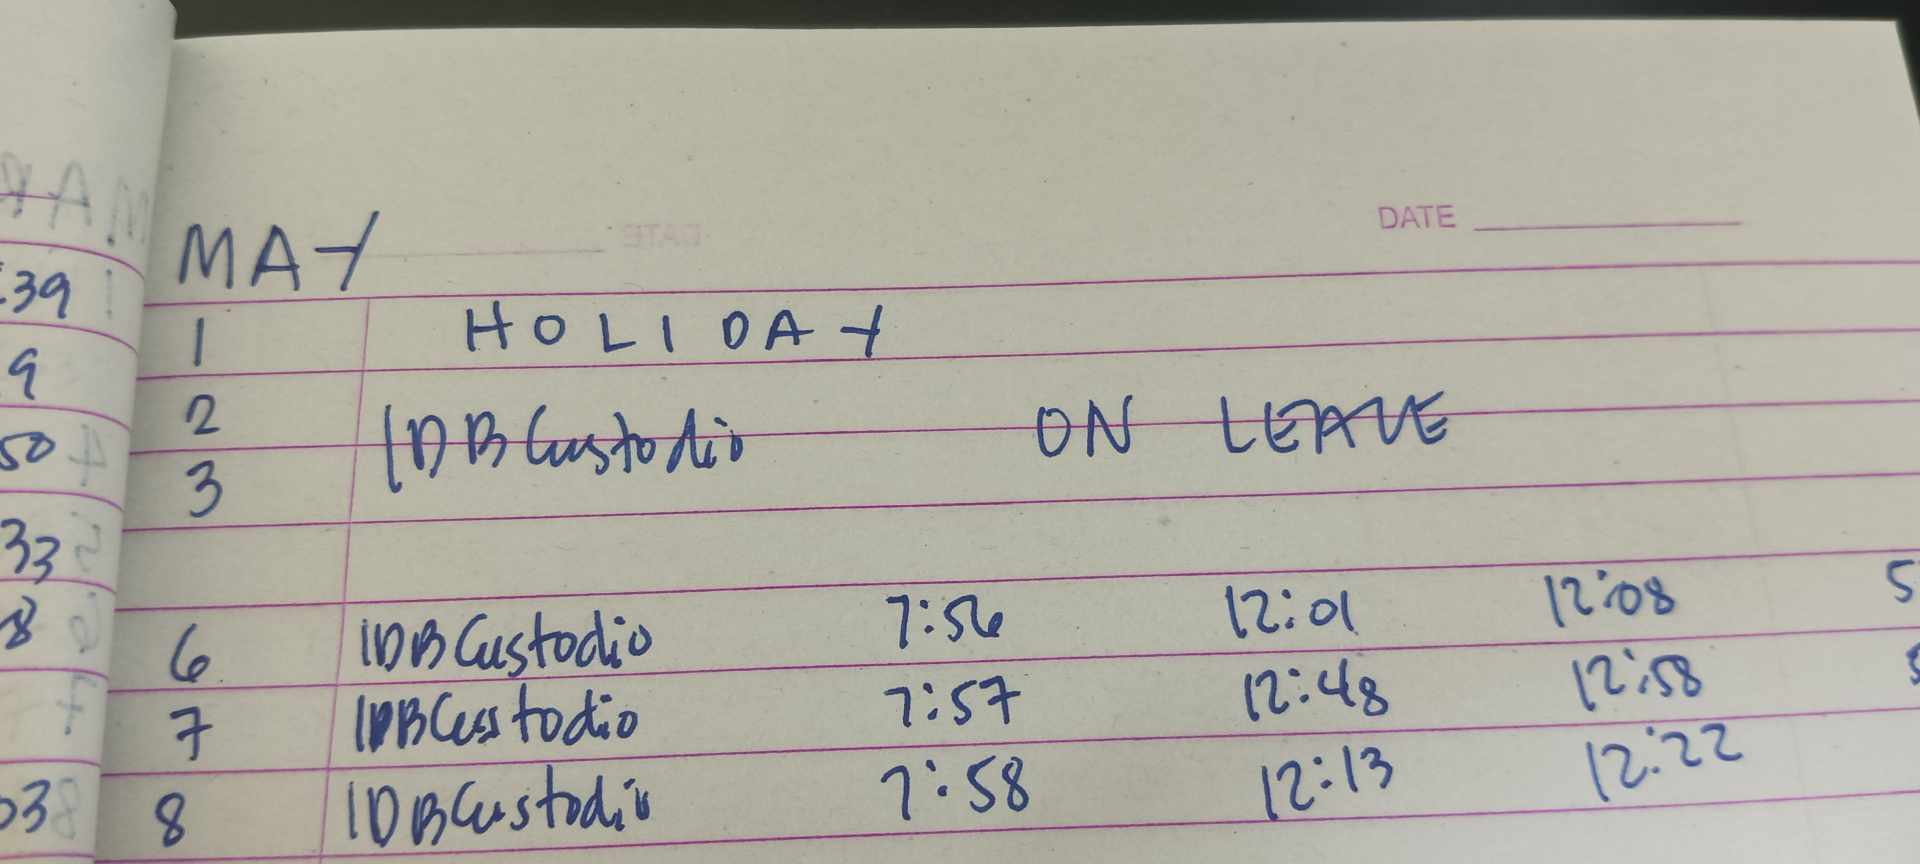 DATE
MAY
1 HOLIDAY
2
IDBCustodio ON LEAVE
3
6 IDBCustodio 7:56 12:01 12:08 5
7 IDBCustodio 7:57 12:48 12:58
8 IDBCustodio 7:58 12:13 12:22
39
9
50
33
8
03